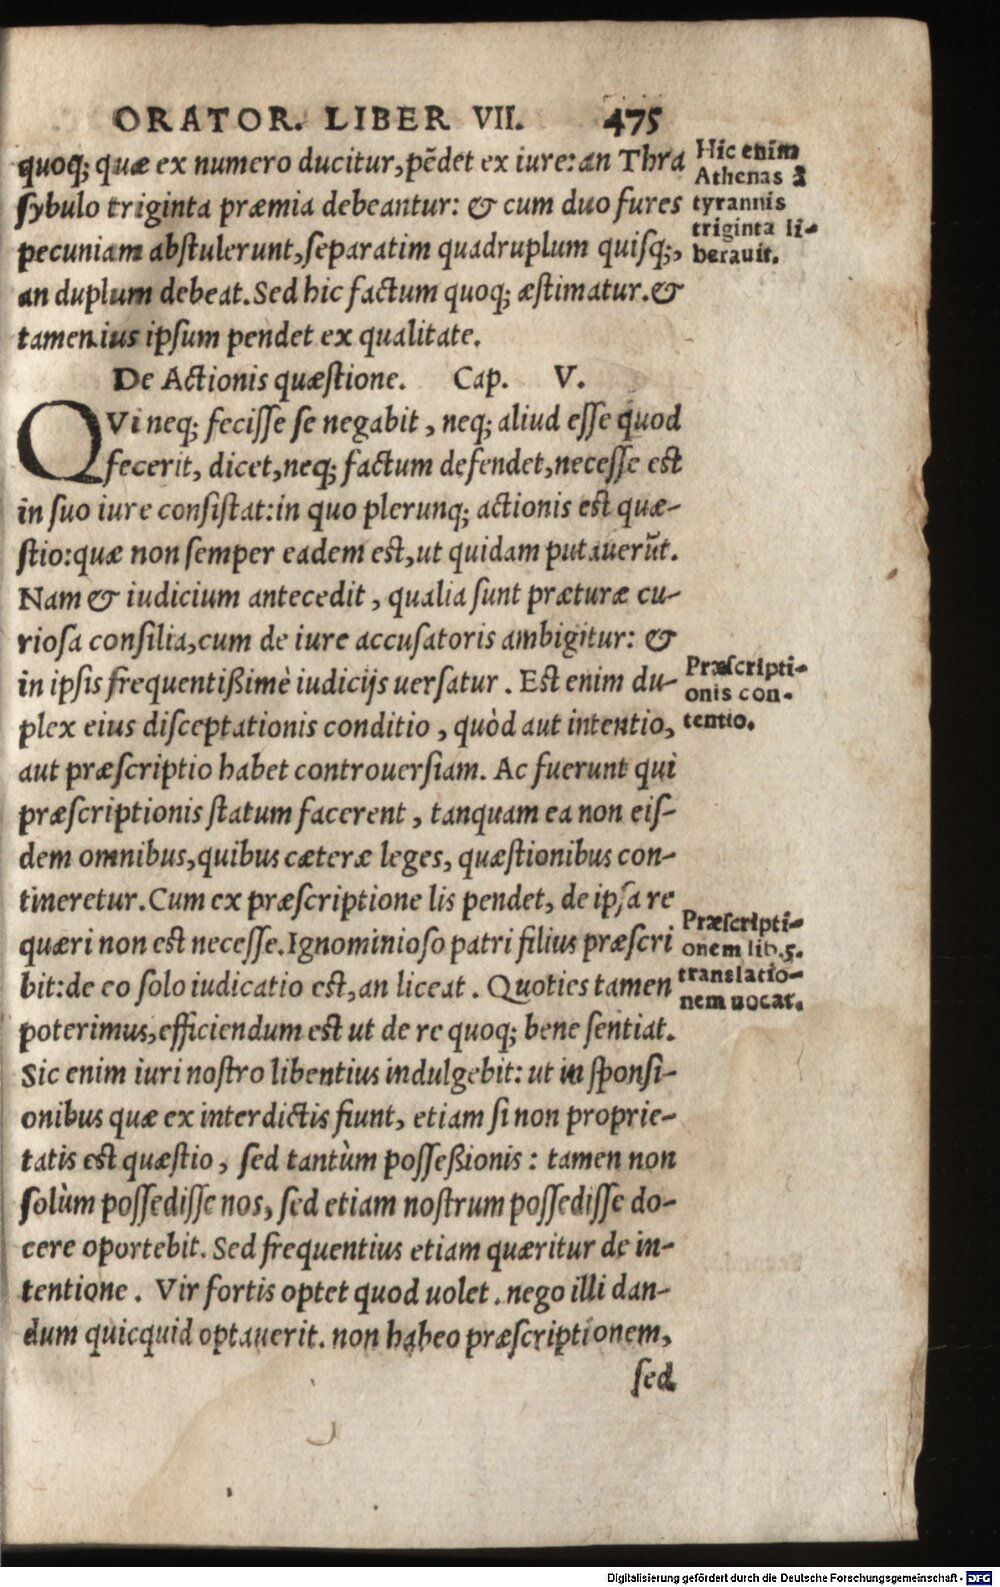 ORATOR. LIBER VII. 475
quoq; quæ ex numero ducitur,pēdet ex iure:an Thra
ſybulo triginta præmia debeantur: & cum duo fures
pecuniam abſtulerunt,ſeparatim quadruplum quiſq;,
an duplum debeat.Sed hic factum quoq; æſtimatur.&
tamen ius ipſum pendet ex qualitate.
Hic enim
Athenas à
tyrannis
triginta li-
berauit.
De Actionis quæſtione. Cap. V.
QVi neq; feciſſe ſe negabit, neq; aliud eſſe quod
fecerit, dicet,neq; factum defendet,neceſſe est
in ſuo iure conſiſtat:in quo plerunq; actionis est quæ-
ſtio:quæ non ſemper eadem est,ut quidam putauerūt.
Nam & iudicium antecedit, qualia ſunt præturæ cu-
rioſa conſilia,cum de iure accuſatoris ambigitur: &
in ipſis frequentißimè iudicijs uerſatur. Est enim du-
plex eius diſceptationis conditio, quòd aut intentio,
aut præſcriptio habet controuerſiam. Ac fuerunt qui
præſcriptionis ſtatum facerent, tanquam ea non eiſ-
dem omnibus,quibus cæteræ leges, quæſtionibus con-
tineretur.Cum ex præſcriptione lis pendet, de ipſa re
quæri non est neceſſe.Ignominioſo patri filius præſcri
bit:de eo ſolo iudicatio est,an liceat. Quoties tamen
poterimus,efficiendum est ut de re quoq; bene ſentiat.
Sic enim iuri noſtro libentius indulgebit: ut in ſponſi-
onibus quæ ex interdictis fiunt, etiam ſi non proprie-
tatis est quæſtio, ſed tantùm poſſeßionis: tamen non
ſolùm poſſediſſe nos, ſed etiam noſtrum poſſediſſe do-
cere oportebit. Sed frequentius etiam quæritur de in-
tentione. Vir fortis optet quod uolet. nego illi dan-
dum quicquid optauerit. non habeo præſcriptionem,
ſed
Præſcripti-
onis con-
tentio.
Præſcripti-
onem lib.5.
translatio-
nem uocat.
Digitalisierung gefördert durch die Deutsche Forschungsgemeinschaft - DFG